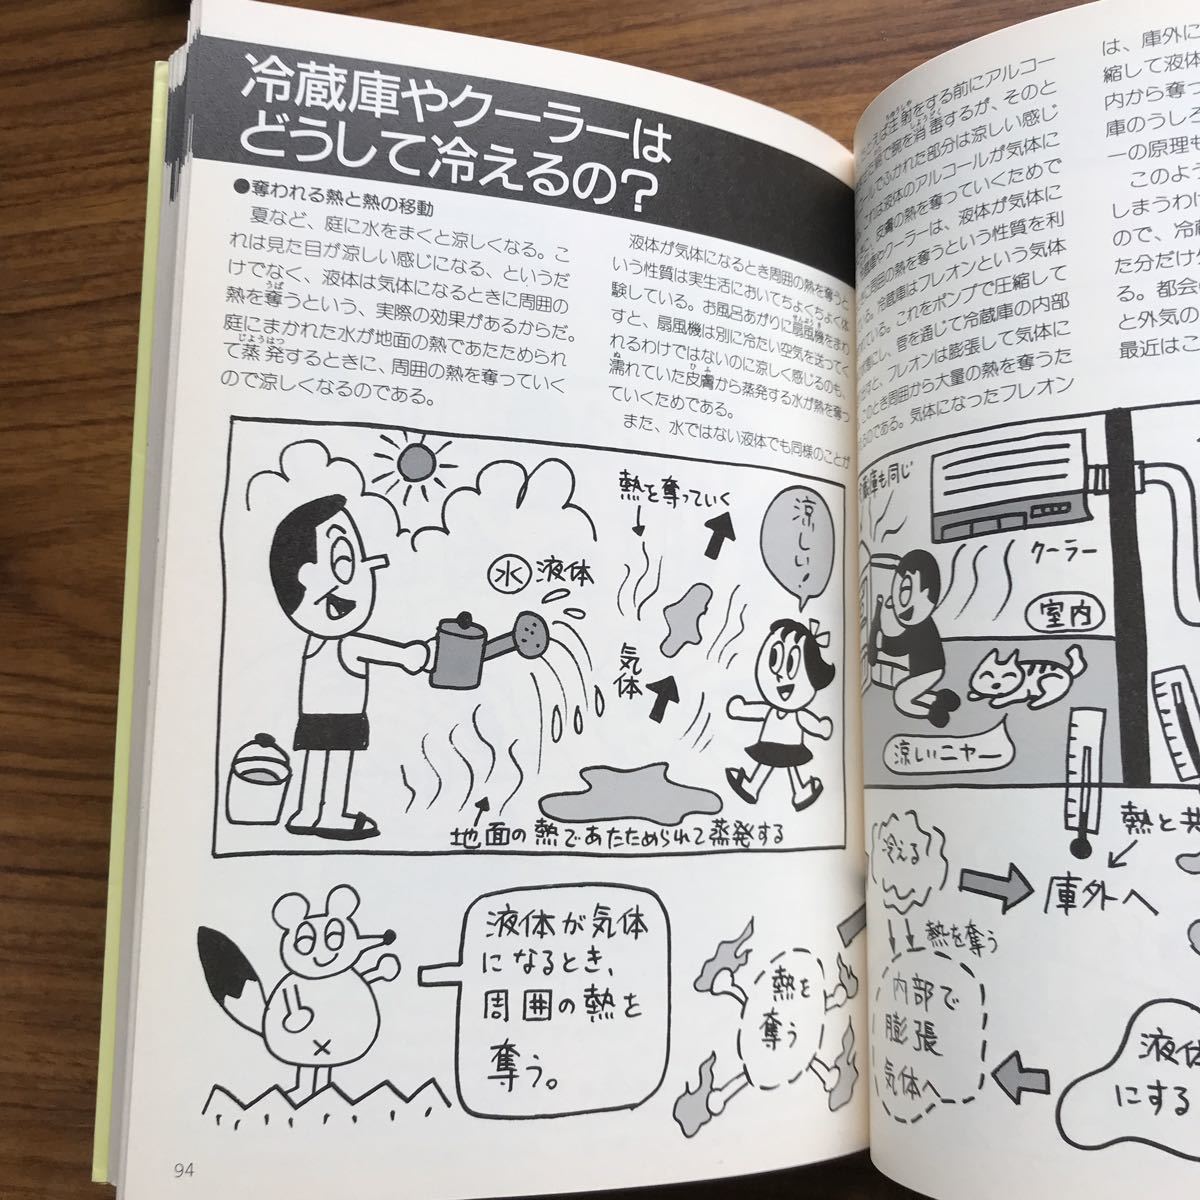 冷蔵庫やクーラーは
どうして冷えるの?
●奪われる熱と熱の移動
夏など、庭に水をまくと涼しくなる。こ
れは見た目が涼しい感じになる、というだ
けでなく、液体は気体になるときに周囲の
熱を奪うという、実際の効果があるからだ。
庭にまかれた水が地面の熱であたためられ
て蒸発するときに、周囲の熱を奪っていく
ので涼しくなるのである。
液体が気体になるとき周囲の熱を奪うと
いう性質は実生活においてちょくちょく体
験している。お風呂あがりに扇風機をまわ
すと、扇風機は別に冷たい空気を送ってく
れるわけではないのに涼しく感じるのも、
濡れていた皮膚から蒸発する水が熱を奪っ
ていくためである。
また、水ではない液体でも同様のことが
熱を奪っていく
涼しい!
水 液体
気体
地面の熱であたためられて蒸発する
液体が気体
になるとき、
周囲の熱を
奪う。
熱を
奪う
94
注射をする前にアルコー
腕を消毒するが、そのと
ふかれた部分は涼しい感じ
は液体のアルコールが気体に
皮膚の熱を奪っていくためで
やクーラーは、液体が気体に
周囲の熱を奪うという性質を利
いる。冷蔵庫はフレオンという気体
ている。これをポンプで圧縮して
にし、管を通じて冷蔵庫の内部
と、フレオンは膨張して気体に
このとき周囲から大量の熱を奪うた
のである。気体になったフレオン
は、庫外に
縮して液体
内から奪っ
庫のうしろ
ーの原理も
このよう
しまうわけ
ので、冷蔵
た分だけ
る。都会
と外気の
最近はこ
庫も同じ
クーラー
室内
涼しいニャー
冷える
熱を奪う
内部で
膨張
気体へ
熱と共
庫外へ
液体
にする